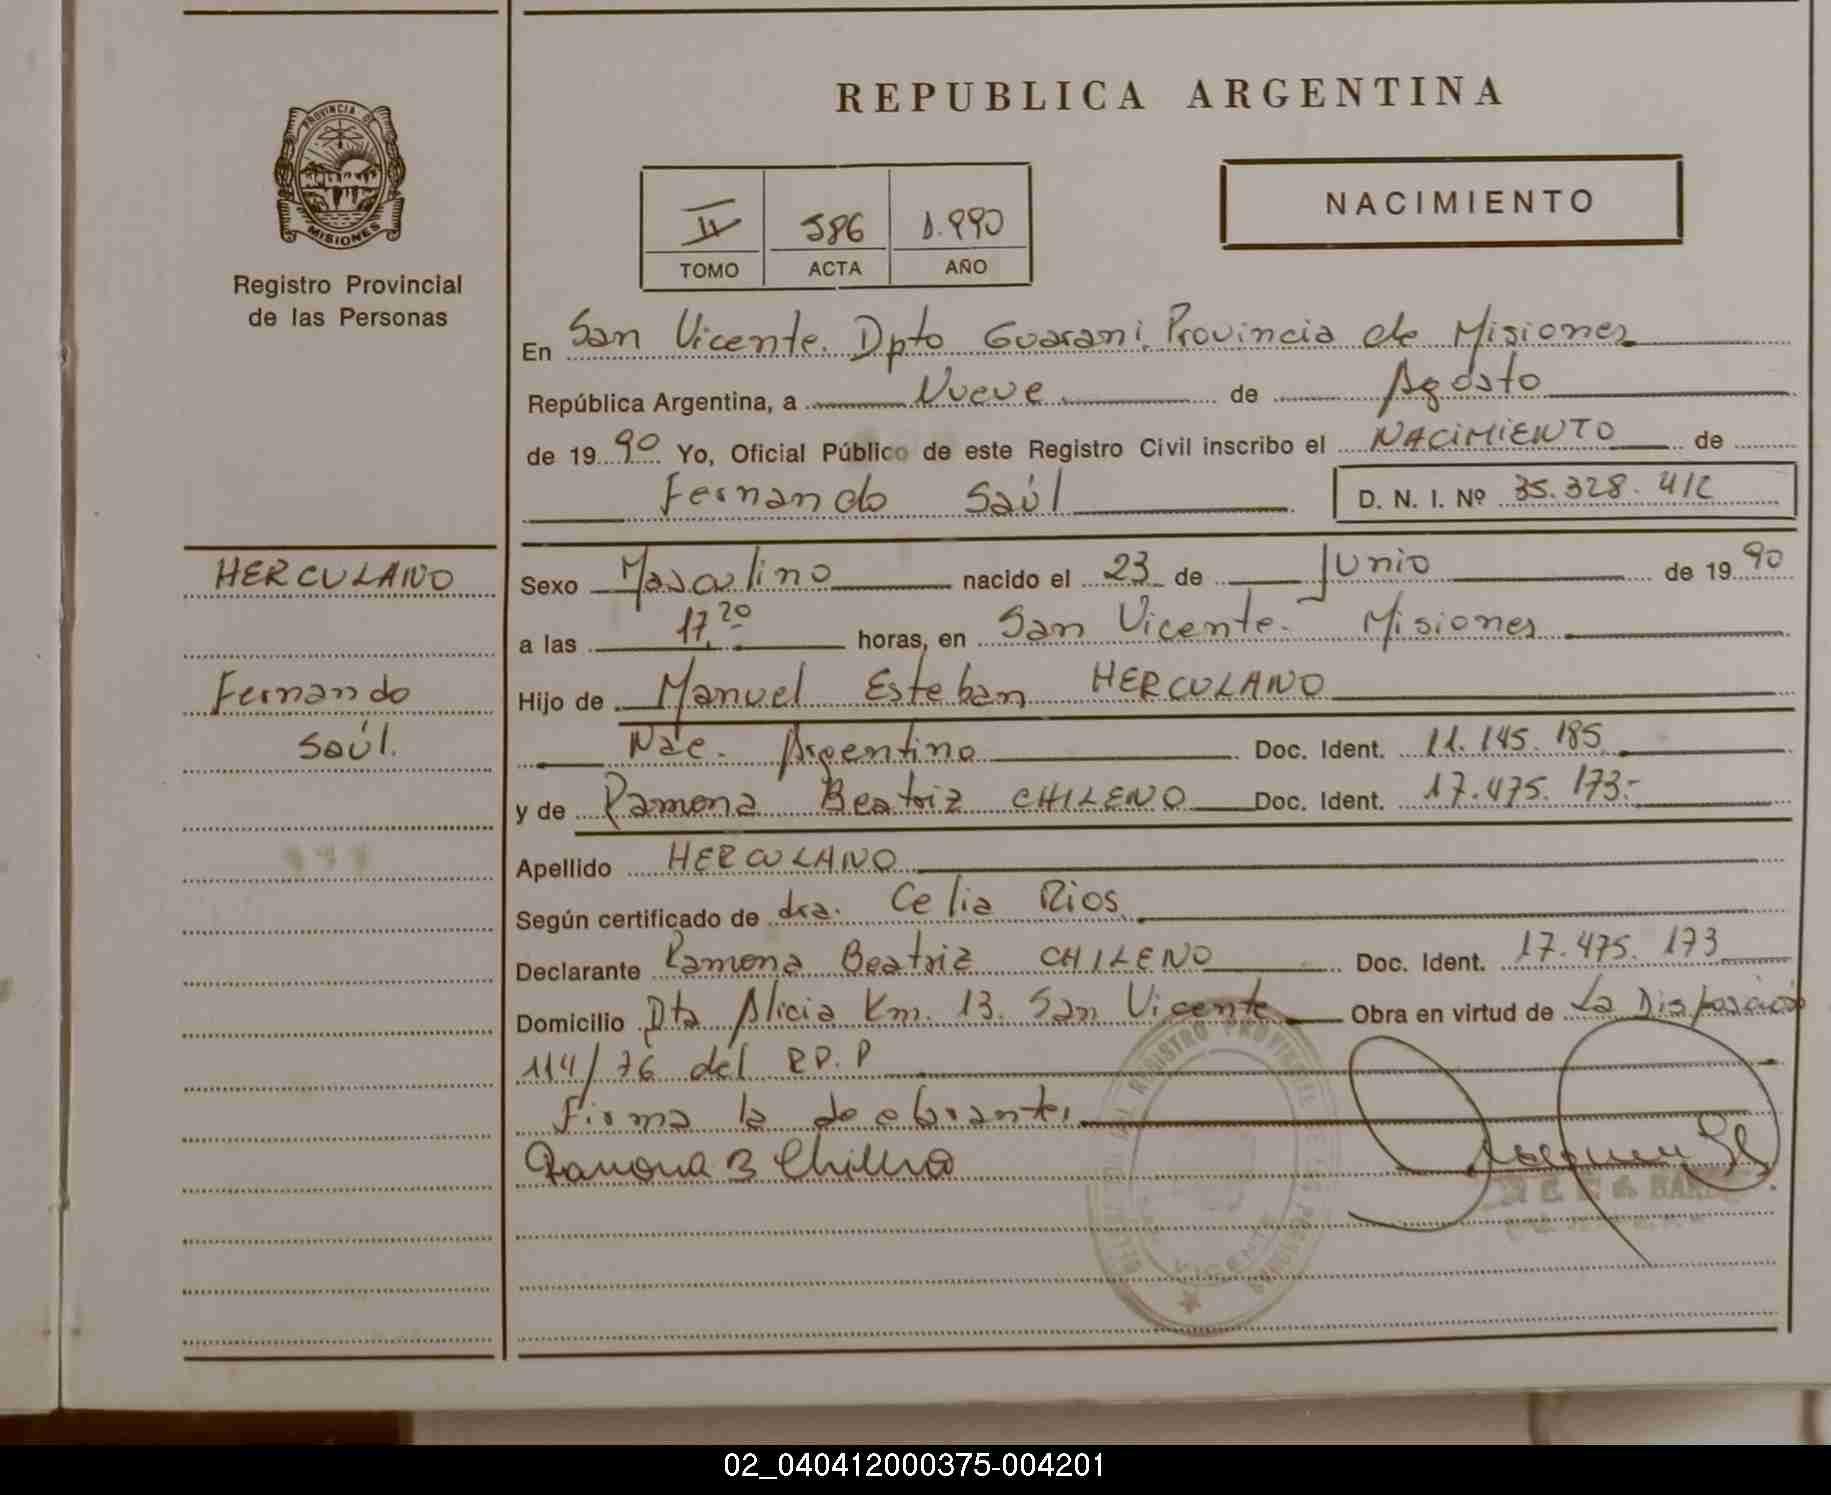 REPUBLICA ARGENTINA
PROVINCIA DE
MISIONES
Registro Provincial
de las Personas
II 586 1.990
TOMO ACTA AÑO
NACIMIENTO
En San Vicente. Dpto Guarani. Provincia de Misiones
República Argentina, a Nueve de Agosto
de 1990 Yo, Oficial Público de este Registro Civil inscribo el NACIMIENTO de
Fernando Saúl D. N. I. Nº 35.328.412
HERCULANO
Fernando
Saúl.
Sexo Masculino nacido el 23 de Junio de 1990
a las 17,20 horas, en San Vicente. Misiones
Hijo de Manuel Esteban HERCULANO
Nac. Argentino Doc. Ident. 11.145.185
y de Ramona Beatriz CHILENO Doc. Ident. 17.475.173.-
Apellido HERCULANO
Según certificado de dra. Celia Rios
Declarante Ramona Beatriz CHILENO Doc. Ident. 17.475.173
Domicilio Dta Alicia Km. 13. San Vicente Obra en virtud de La Disposición
114/76 del R.P.P
Firma la declarante.
Ramona B Chileno
REGISTRO PROVINCIAL DE LAS PERSONAS
VICENTE
02_040412000375-004201